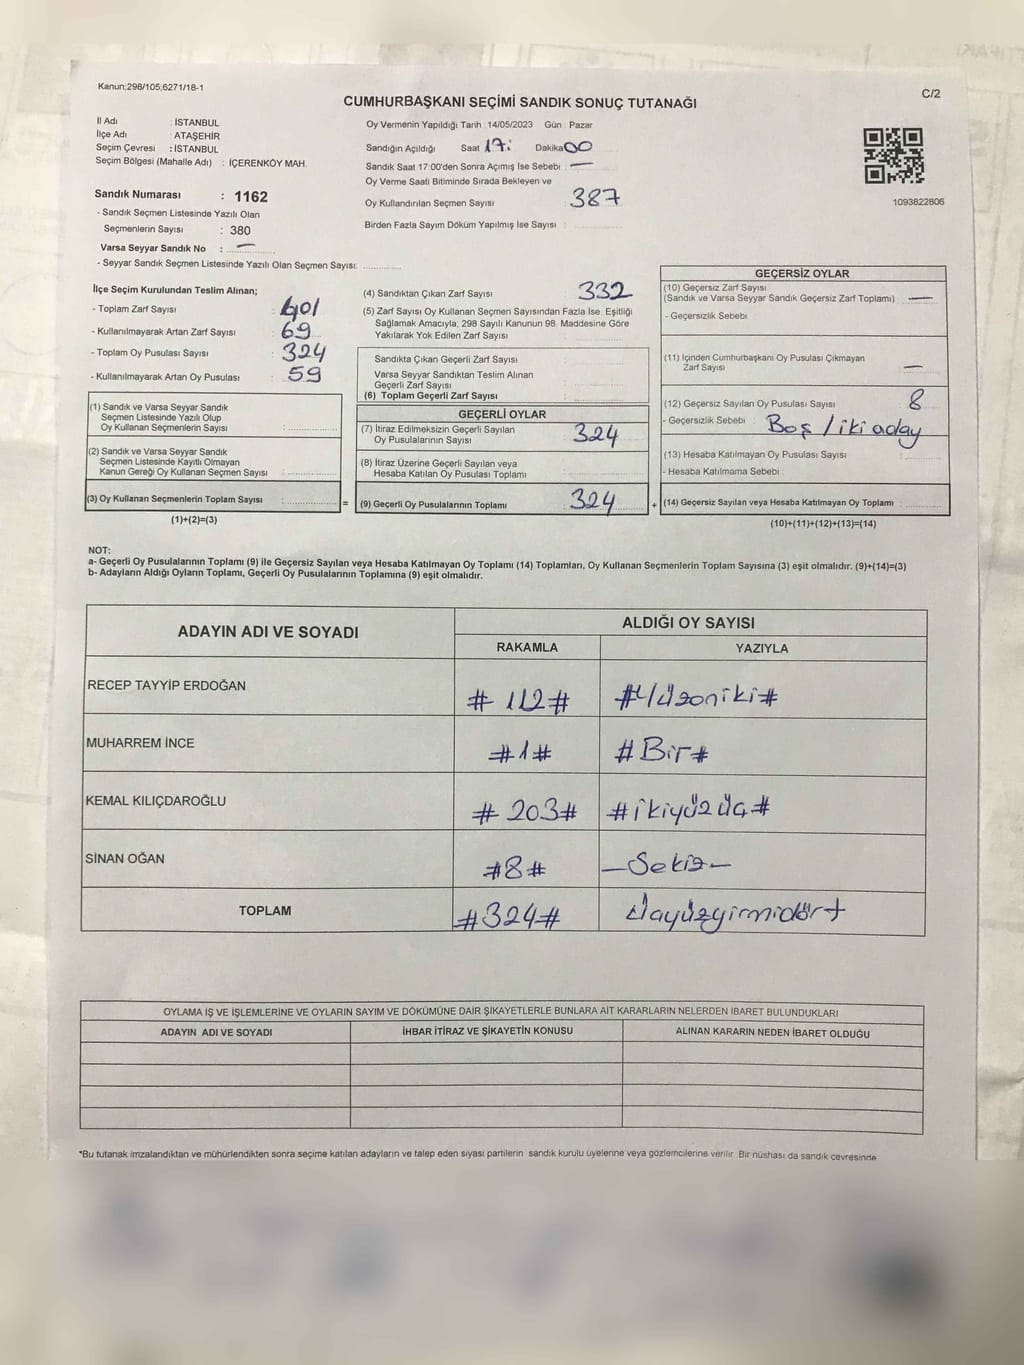 Kanun;298/105;6271/18-1
C/2
CUMHURBAŞKANI SEÇİMİ SANDIK SONUÇ TUTANAĞI
İl Adı : İSTANBUL
İlçe Adı : ATAŞEHİR
Seçim Çevresi : İSTANBUL
Seçim Bölgesi (Mahalle Adı) : İÇERENKÖY MAH.
Sandık Numarası : 1162
- Sandık Seçmen Listesinde Yazılı Olan
Seçmenlerin Sayısı : 380
Varsa Seyyar Sandık No : —
- Seyyar Sandık Seçmen Listesinde Yazılı Olan Seçmen Sayısı:
Oy Vermenin Yapıldığı Tarih :14/05/2023 Gün : Pazar
Sandığın Açıldığı Saat 17: Dakika 00
Sandık Saat 17:00'den Sonra Açımış İse Sebebi : —
Oy Verme Saati Bitiminde Sırada Bekleyen ve
Oy Kullandırılan Seçmen Sayısı : 387
Birden Fazla Sayım Döküm Yapılmış İse Sayısı :
1093822606
İlçe Seçim Kurulundan Teslim Alınan;
- Toplam Zarf Sayısı : 401
- Kullanılmayarak Artan Zarf Sayısı : 69
- Toplam Oy Pusulası Sayısı : 324
- Kullanılmayarak Artan Oy Pusulası : 59
(1) Sandık ve Varsa Seyyar Sandık
Seçmen Listesinde Yazılı Olup
Oy Kullanan Seçmenlerin Sayısı :
(2) Sandık ve Varsa Seyyar Sandık
Seçmen Listesinde Kayıtlı Olmayan
Kanun Gereği Oy Kullanan Seçmen Sayısı :
(3) Oy Kullanan Seçmenlerin Toplam Sayısı : =
(1)+(2)=(3)
(4) Sandıktan Çıkan Zarf Sayısı : 332
(5) Zarf Sayısı Oy Kullanan Seçmen Sayısından Fazla İse, Eşitliği
Sağlamak Amacıyla; 298 Sayılı Kanunun 98. Maddesine Göre
Yakılarak Yok Edilen Zarf Sayısı :
Sandıkta Çıkan Geçerli Zarf Sayısı :
Varsa Seyyar Sandıktan Teslim Alınan
Geçerli Zarf Sayısı :
(6) Toplam Geçerli Zarf Sayısı :
GEÇERLİ OYLAR
(7) İtiraz Edilmeksizin Geçerli Sayılan
Oy Pusulalarının Sayısı : 324
(8) İtiraz Üzerine Geçerli Sayılan veya
Hesaba Katılan Oy Pusulası Toplamı :
(9) Geçerli Oy Pusulalarının Toplamı : 324 +
GEÇERSİZ OYLAR
(10) Geçersiz Zarf Sayısı
(Sandık ve Varsa Seyyar Sandık Geçersiz Zarf Toplamı) : —
- Geçersizlik Sebebi :
(11) İçinden Cumhurbaşkanı Oy Pusulası Çıkmayan
Zarf Sayısı : —
(12) Geçersiz Sayılan Oy Pusulası Sayısı : 8
- Geçersizlik Sebebi : Boş / iki aday
(13) Hesaba Katılmayan Oy Pusulası Sayısı :
- Hesaba Katılmama Sebebi :
(14) Geçersiz Sayılan veya Hesaba Katılmayan Oy Toplamı :
(10)+(11)+(12)+(13)=(14)
NOT:
a- Geçerli Oy Pusulalarının Toplamı (9) ile Geçersiz Sayılan veya Hesaba Katılmayan Oy Toplamı (14) Toplamları, Oy Kullanan Seçmenlerin Toplam Sayısına (3) eşit olmalıdır. (9)+(14)=(3)
b- Adayların Aldığı Oyların Toplamı, Geçerli Oy Pusulalarının Toplamına (9) eşit olmalıdır.
ADAYIN ADI VE SOYADI ALDIĞI OY SAYISI
RAKAMLA YAZIYLA
RECEP TAYYİP ERDOĞAN # 112 # #Yüzoniki#
MUHARREM İNCE #1# #Bir#
KEMAL KILIÇDAROĞLU # 203# #ikiyüzüç#
SİNAN OĞAN #8# —Sekiz—
TOPLAM #324# Üçyüzyirmidört
OYLAMA İŞ VE İŞLEMLERİNE VE OYLARIN SAYIM VE DÖKÜMÜNE DAİR ŞİKAYETLERLE BUNLARA AİT KARARLARIN NELERDEN İBARET BULUNDUKLARI
ADAYIN ADI VE SOYADI İHBAR İTİRAZ VE ŞİKAYETİN KONUSU ALINAN KARARIN NEDEN İBARET OLDUĞU
*Bu tutanak imzalandıktan ve mühürlendikten sonra seçime katılan adayların ve talep eden siyasi partilerin sandık kurulu üyelerine veya gözlemcilerine verilir. Bir nüshası da sandık çevresinde